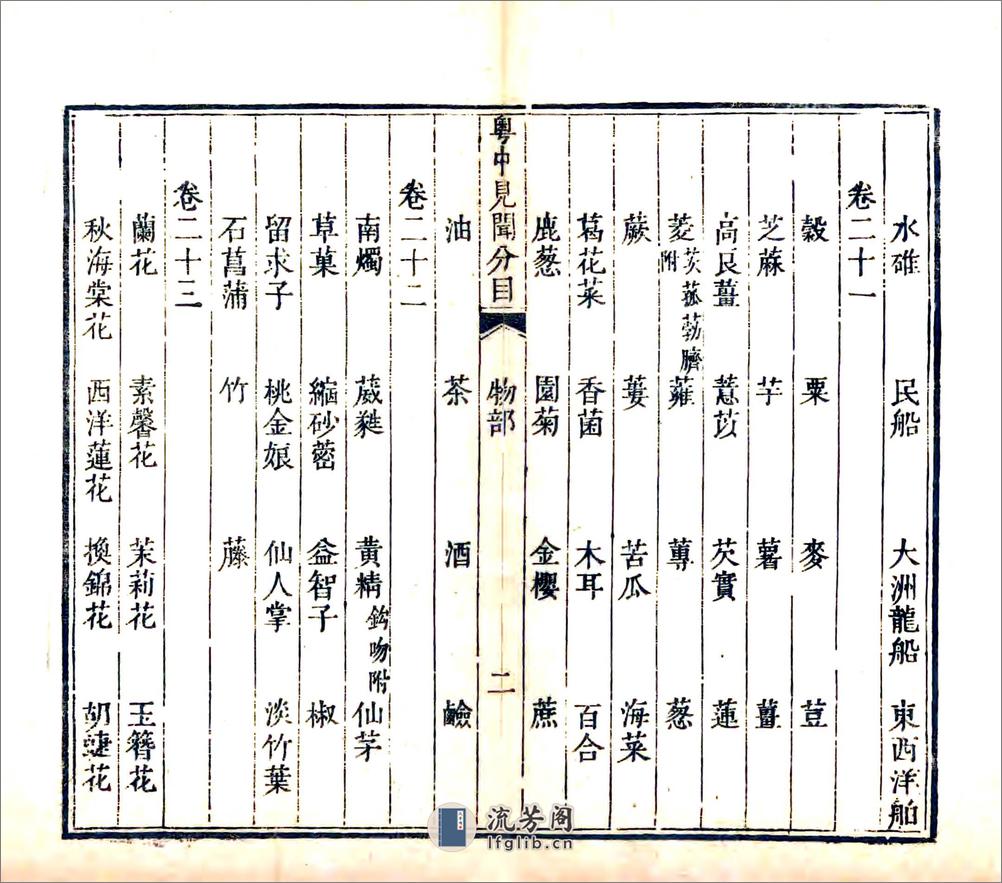 水碓 民船 大洲龍船 東西洋舶
卷二十一
穀 粟 麥 荳
芝蔴 芋 薯 薑
高良薑 薏苡 芡實 蓮
菱茨菰荸臍附 蕹 蓴 葱
蕨 蔞 苦瓜 海菜
葛花菜 香菌 木耳 百合
鹿葱 園菊 金櫻 蔗
粵中見聞分目 物部 二
油 茶 酒 鹼
卷二十二
南燭 葳蕤 黃精鈎吻附 仙茅
草菓 縮砂蔤 益智子 椒
留求子 桃金娘 仙人掌 淡竹葉
石菖蒲 竹 藤
卷二十三
蘭花 素馨花 茉莉花 玉簪花
秋海棠花 西洋蓮花 換錦花 胡蝶花
流芳阁
lfglib.cn